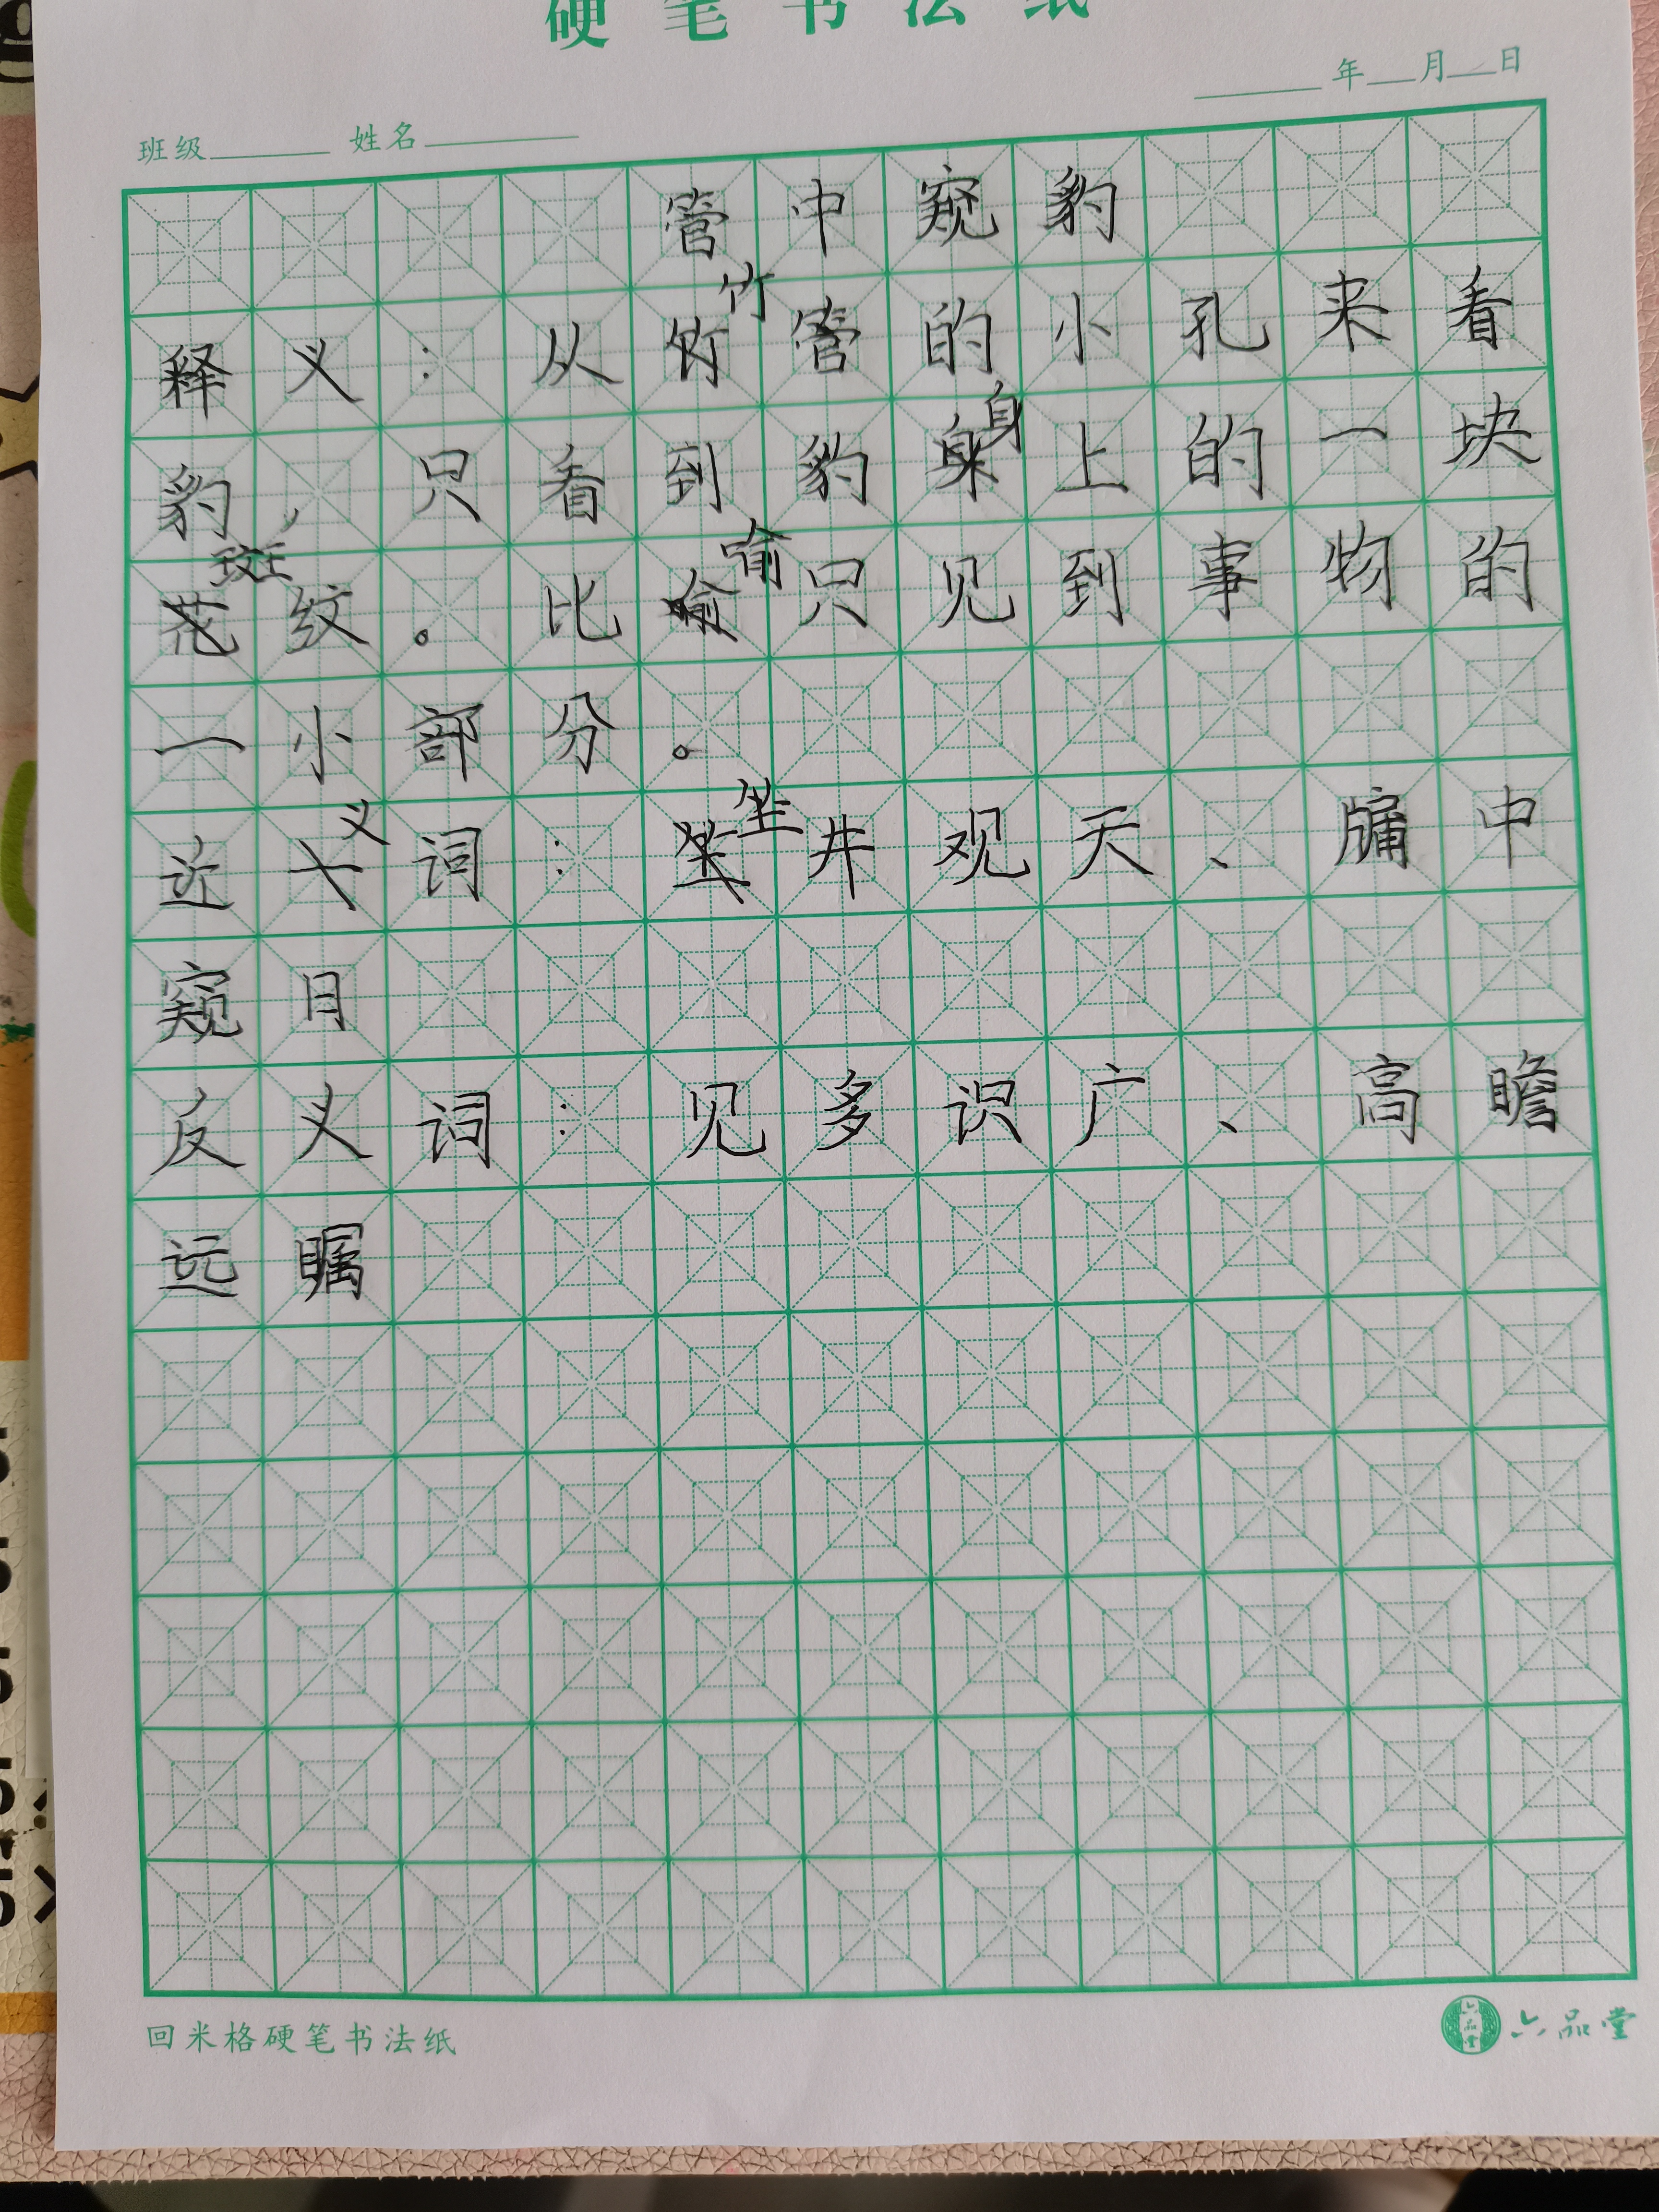 硬笔书法纸
年 月 日
班级 姓名
管中窥豹
释义：从竹管的小孔来看
豹，只看到豹身上的一块
斑纹。比喻只见到事物的
一小部分。
近义词：坐井观天、牖中
窥日
反义词：见多识广、高瞻
远瞩
回米格硬笔书法纸
六品堂